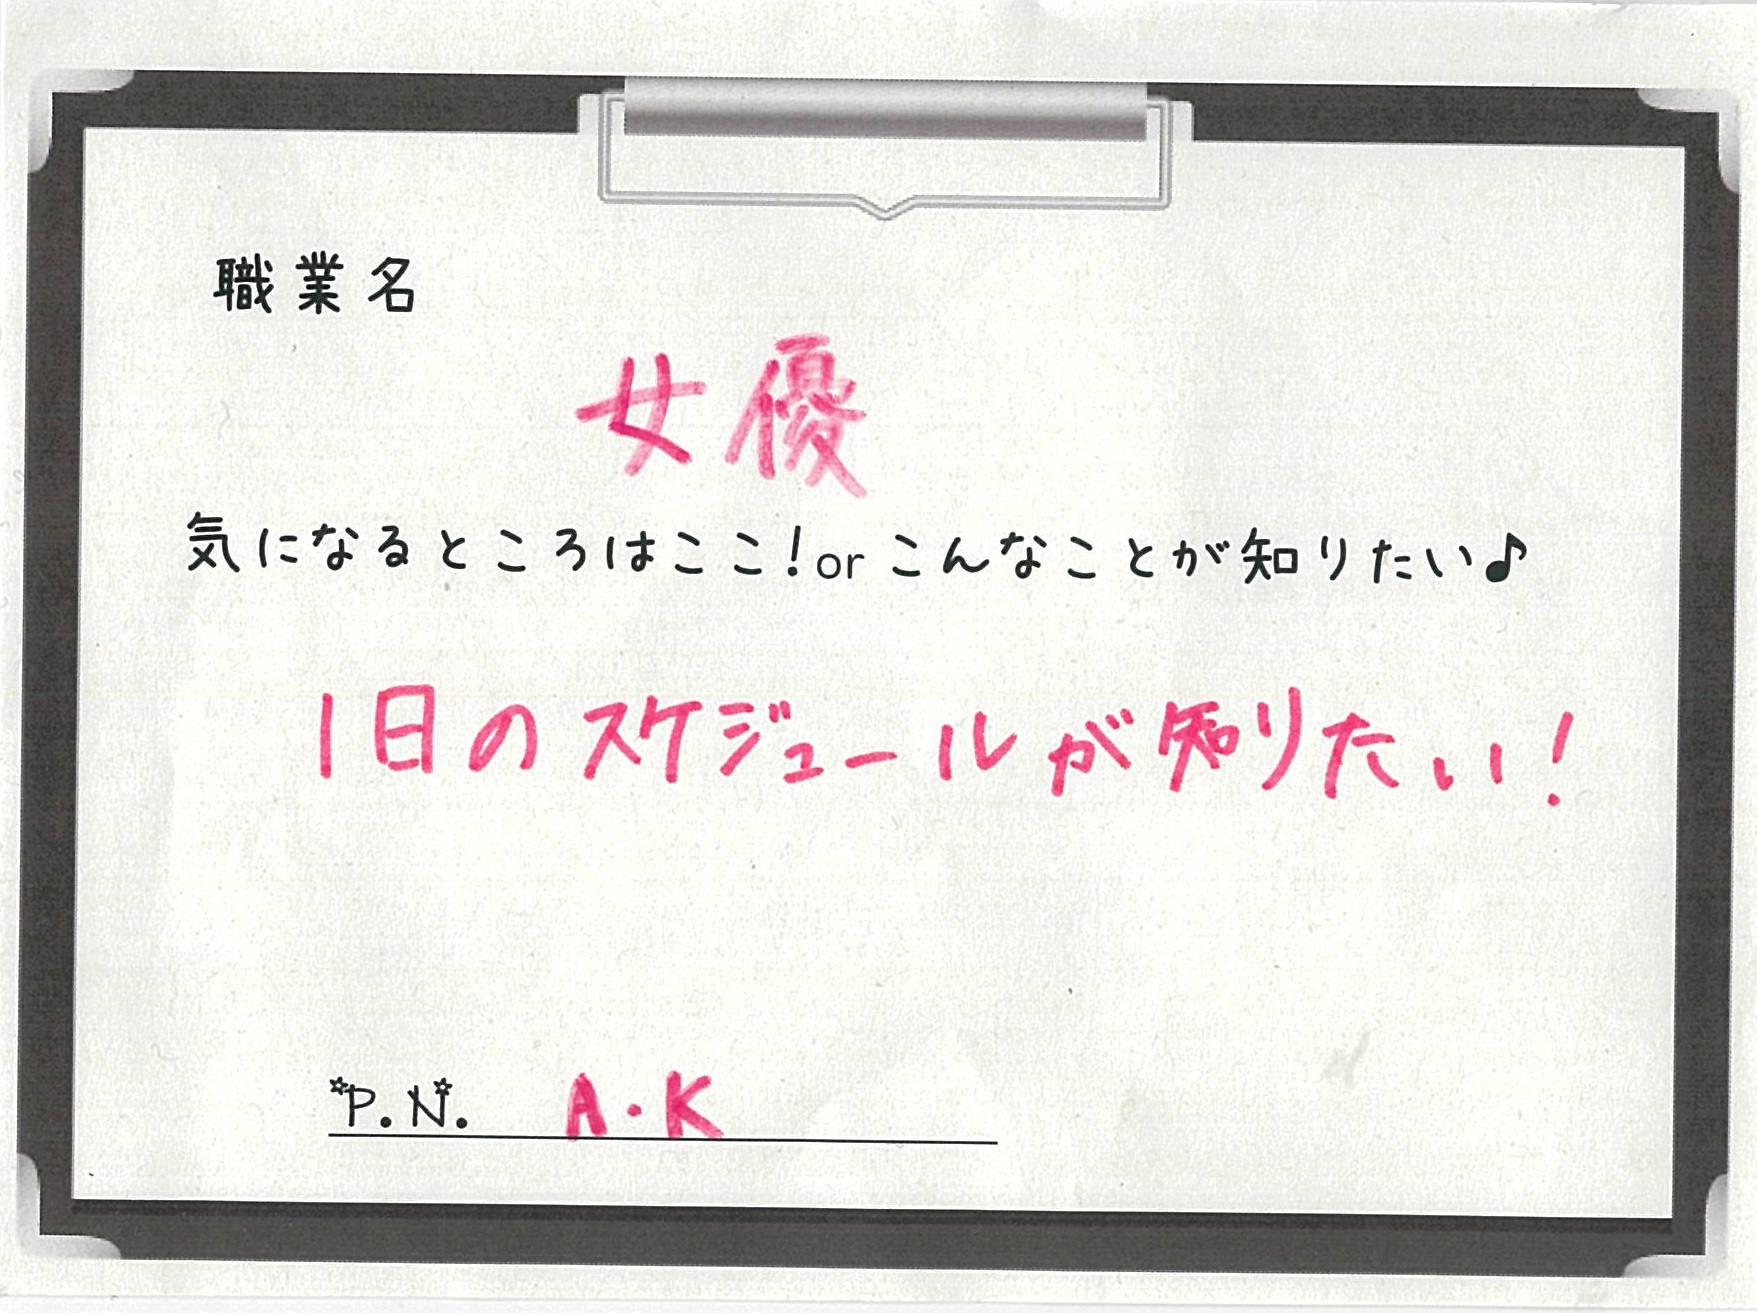 職業名
女優
気になるところはここ!orこんなことが知りたい♪
1日のスケジュールが知りたい!
P.N. A・K